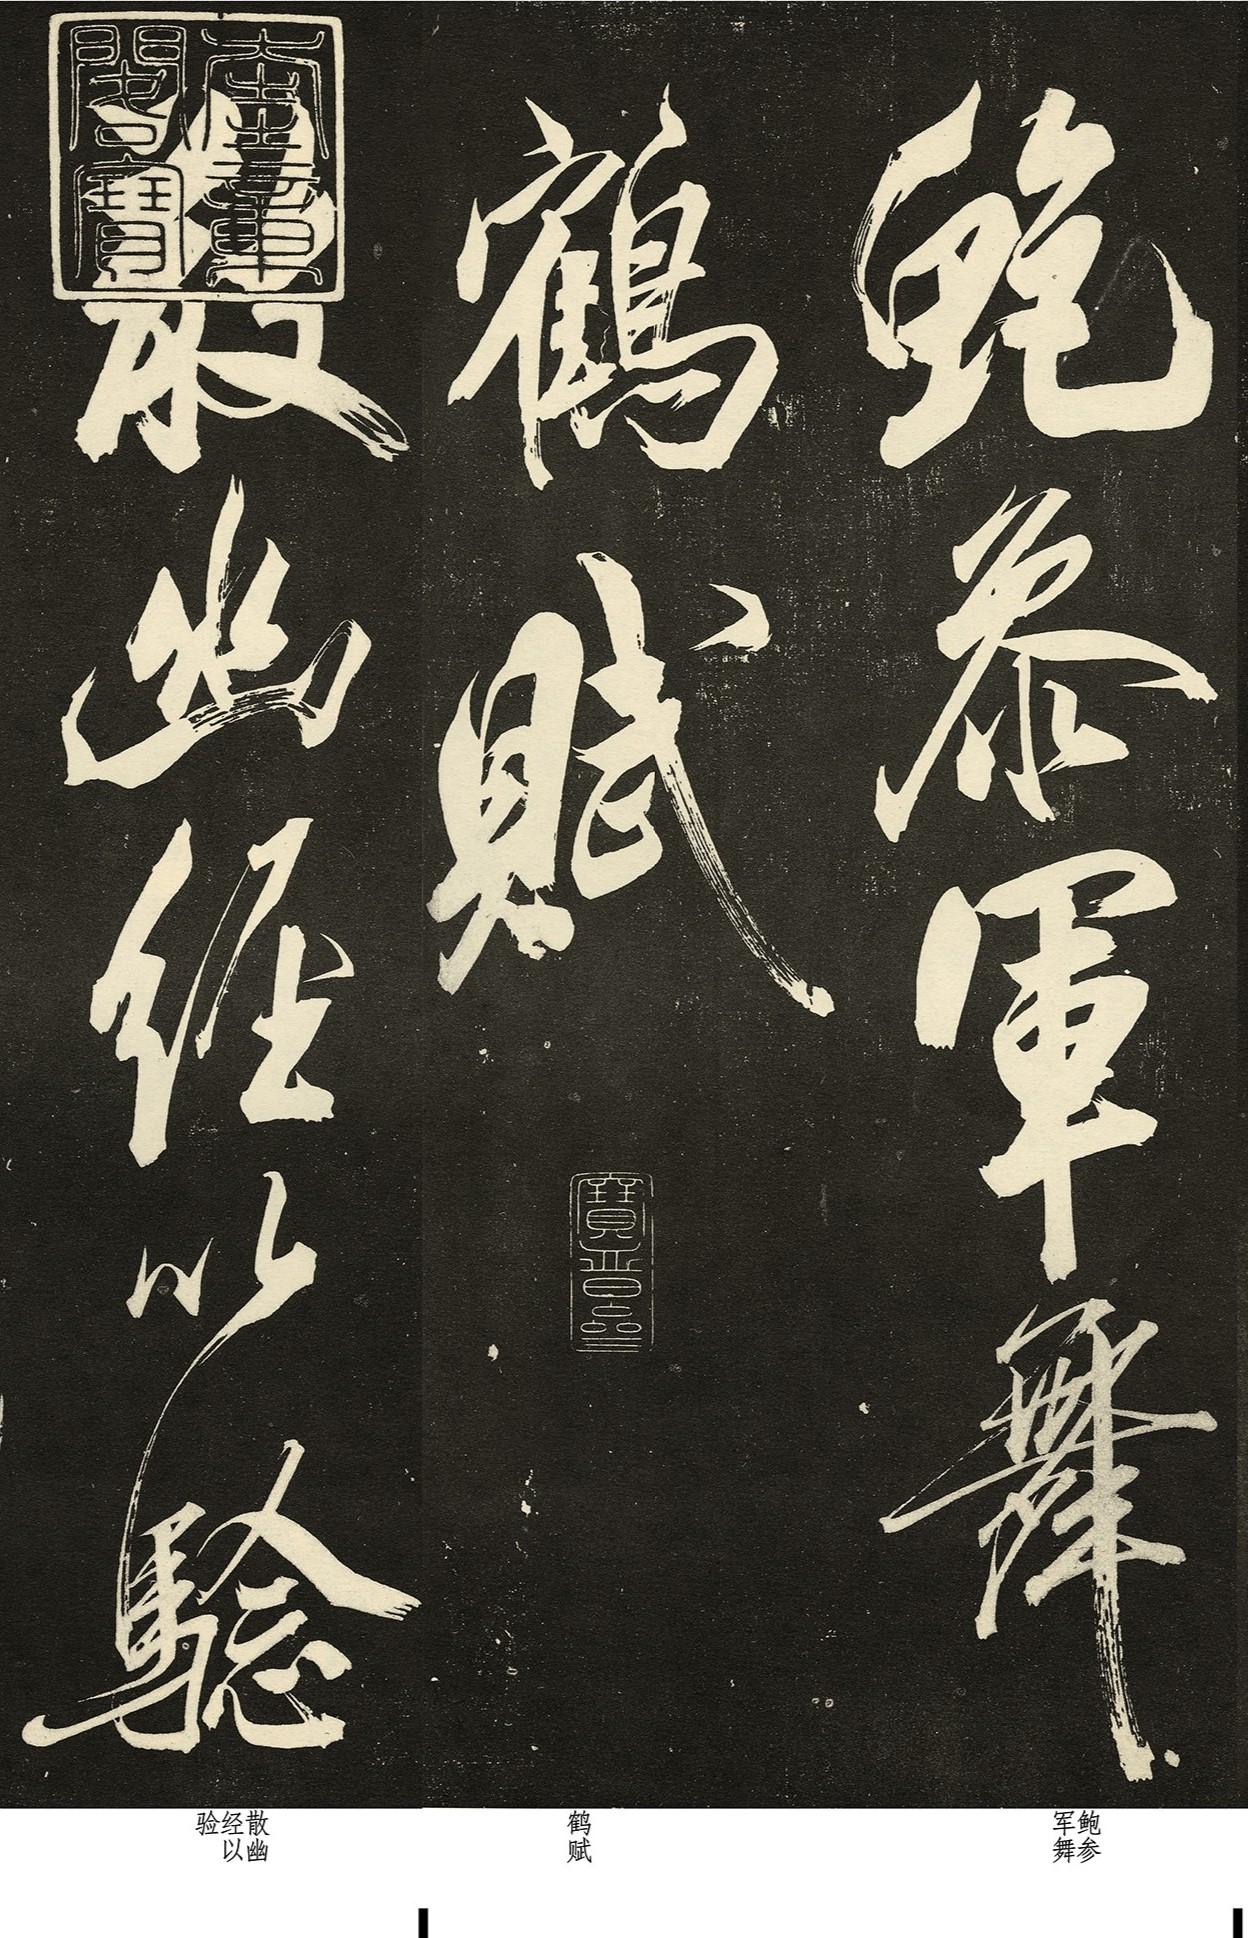 鮑參軍舞
鶴賦
散幽經以驗
寶晉齋
鲍参
军舞
鹤
赋
散幽
经以
验